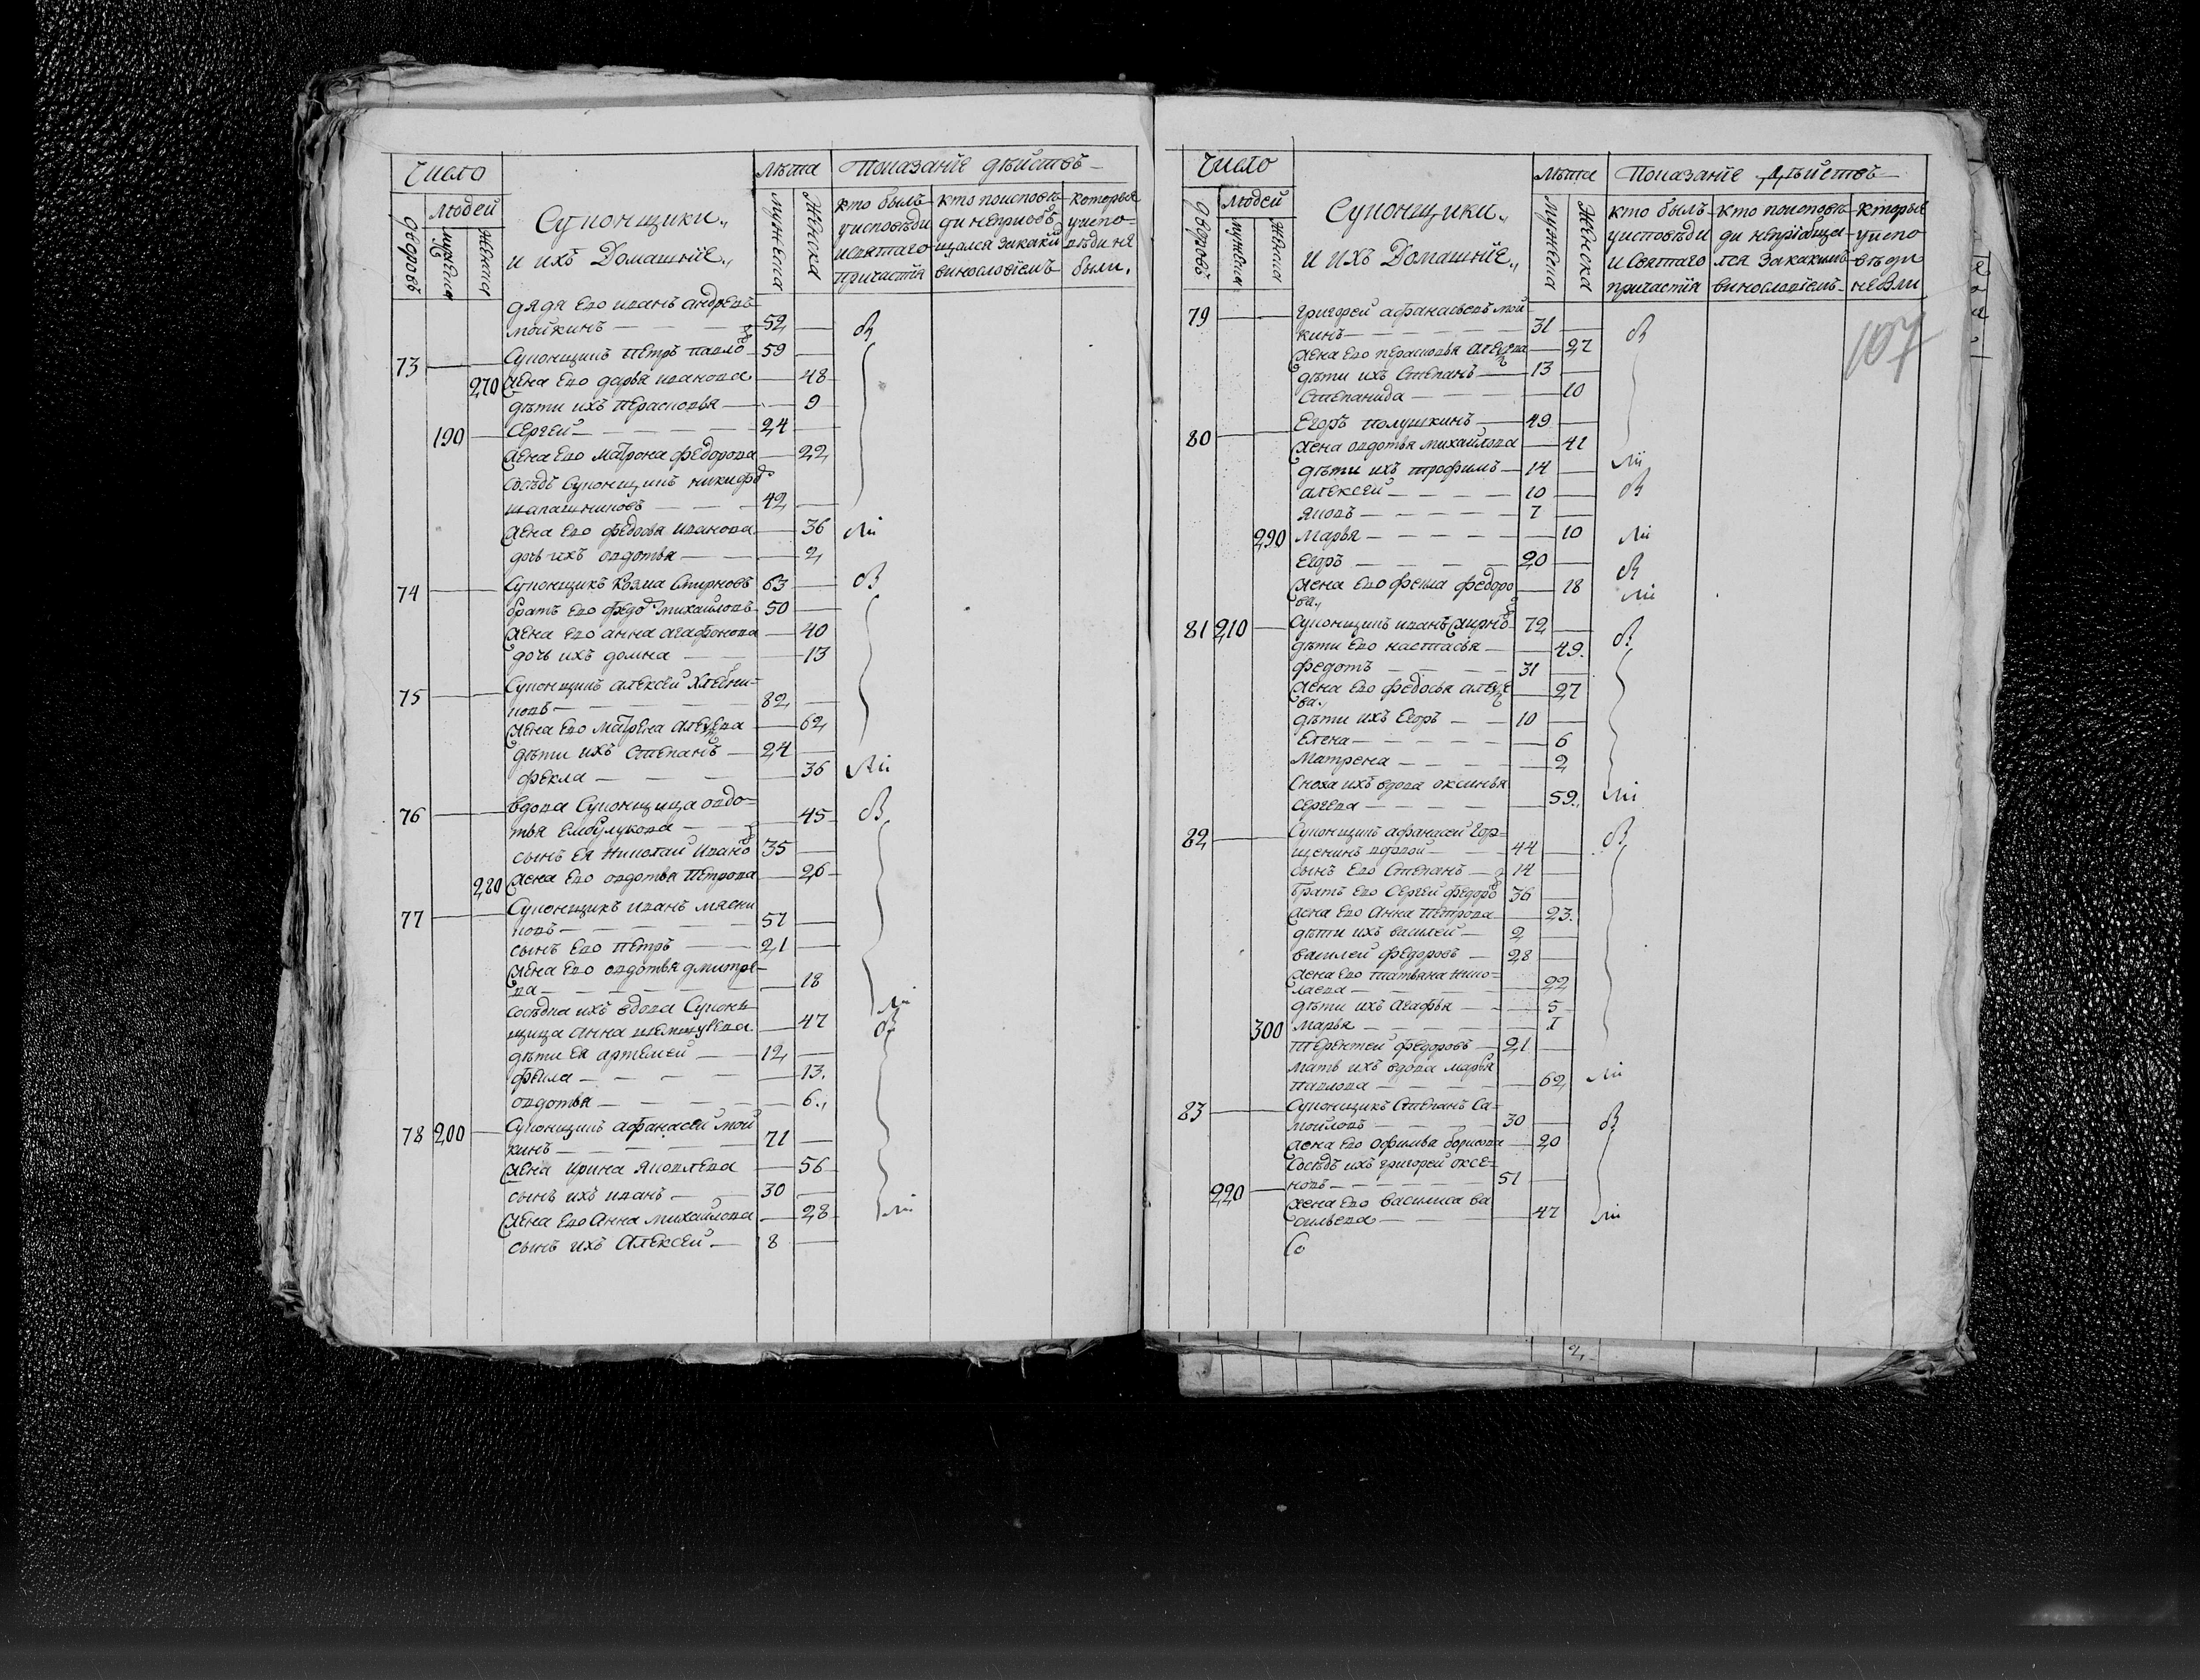 Число
Лѣта Показанїе дѣйствъ
дворовъ
людей
мужеска
женска
Суконщики
и ихъ Домашнїе
мужеска
женска
кто былъ у исповѣди и святаго причастїя
кто по исповѣди не приобщался за какимъ винословїемъ
которые у исповѣди не были.
дядя ево иванъ андреевъ
мойкинъ 52
73 Суконщикъ петръ павловъ 59
270 жена ево дарья иванова 48
дѣти ихъ перасковья 9
190 Сергей 24
жена ево матрона федорова 22
сосѣдъ Суконщикъ никифоръ
шапашниковъ 42
жена ево федосья иванова 36
дочь ихъ овдотья 2
74 Суконщикъ Козма Смирновъ 63
братъ ево федоръ михайловъ 50
жена ево анна агафонова 40
дочь ихъ домна 13
75 Суконщикъ алексей Хлебни-
ковъ 82
жена ево матрена алексеева 62
дѣти ихъ Степанъ 24
фекла 36
76 вдова Суконщица овдо-
тья Ембулукова 45
сынъ ея николай ивановъ 35
280 жена ево овдотья петрова 26
77 Суконщикъ иванъ мясни
ковъ 57
сынъ ево петръ 21
жена ево овдотья дмитре-
ва 18
сосѣдка ихъ вдова Сукон-
щица анна 47
дѣти ея артемей 12
фекла 13.
овдотья 6.
78 200 Суконщикъ афанасей мой
кинъ 71
жена ирина яковлева 56
сынъ ихъ иванъ 30
жена ево Анна михайлова 28
сынъ ихъ Алексей 8
Число
Лѣта Показанїе дѣйствъ
дворовъ
людей
мужеска
женска
Суконщики
и ихъ Домашнїе
мужеска
женска
кто былъ у исповѣди и святаго причастїя
кто по исповѣди не прїобщался за какимъ винословїемъ
которые у исповѣди не были
107
79 григорей афанасьевъ мой
кинъ 31
жена ево перасковья алексеева 27
дѣти ихъ Степанъ 13
Степанида 10
80 Егоръ полушкинъ 49
жена овдотья михайлова 41
дѣти ихъ трофимъ 14
алексей 10
яковъ 7
290 марья 10
Егоръ 20
жена ево фекла федоро
ва 18
81 210 Суконщикъ иванъ Смирновъ 72
дѣти ево настасья 49.
федотъ 31
жена ево федосья алексее
ва 27
дѣти ихъ Егоръ 10
Елена 6
Матрена 2
Сноха ихъ вдова оксинья
сергеева 59.
82 Суконщикъ афанасей Гор-
щенинъ вдовой 44
сынъ ево Степанъ 14
братъ ево Сергей федоровъ 36
жена ево Анна Петрова 23.
дѣти ихъ василей 2
василей федоровъ 28
жена ево татьяна нико-
лаева 22
дѣти ихъ агафья 5
300 марья 1
терентей федоровъ 21
мать ихъ вдова марья
павлова 62
83 Суконщикъ Степанъ Са-
мойловъ 30
жена ево офимья борисова 20
Сосѣдъ ихъ григорей оксе-
новъ 51
220 жена ево василиса ва
сильева 47
Со
2